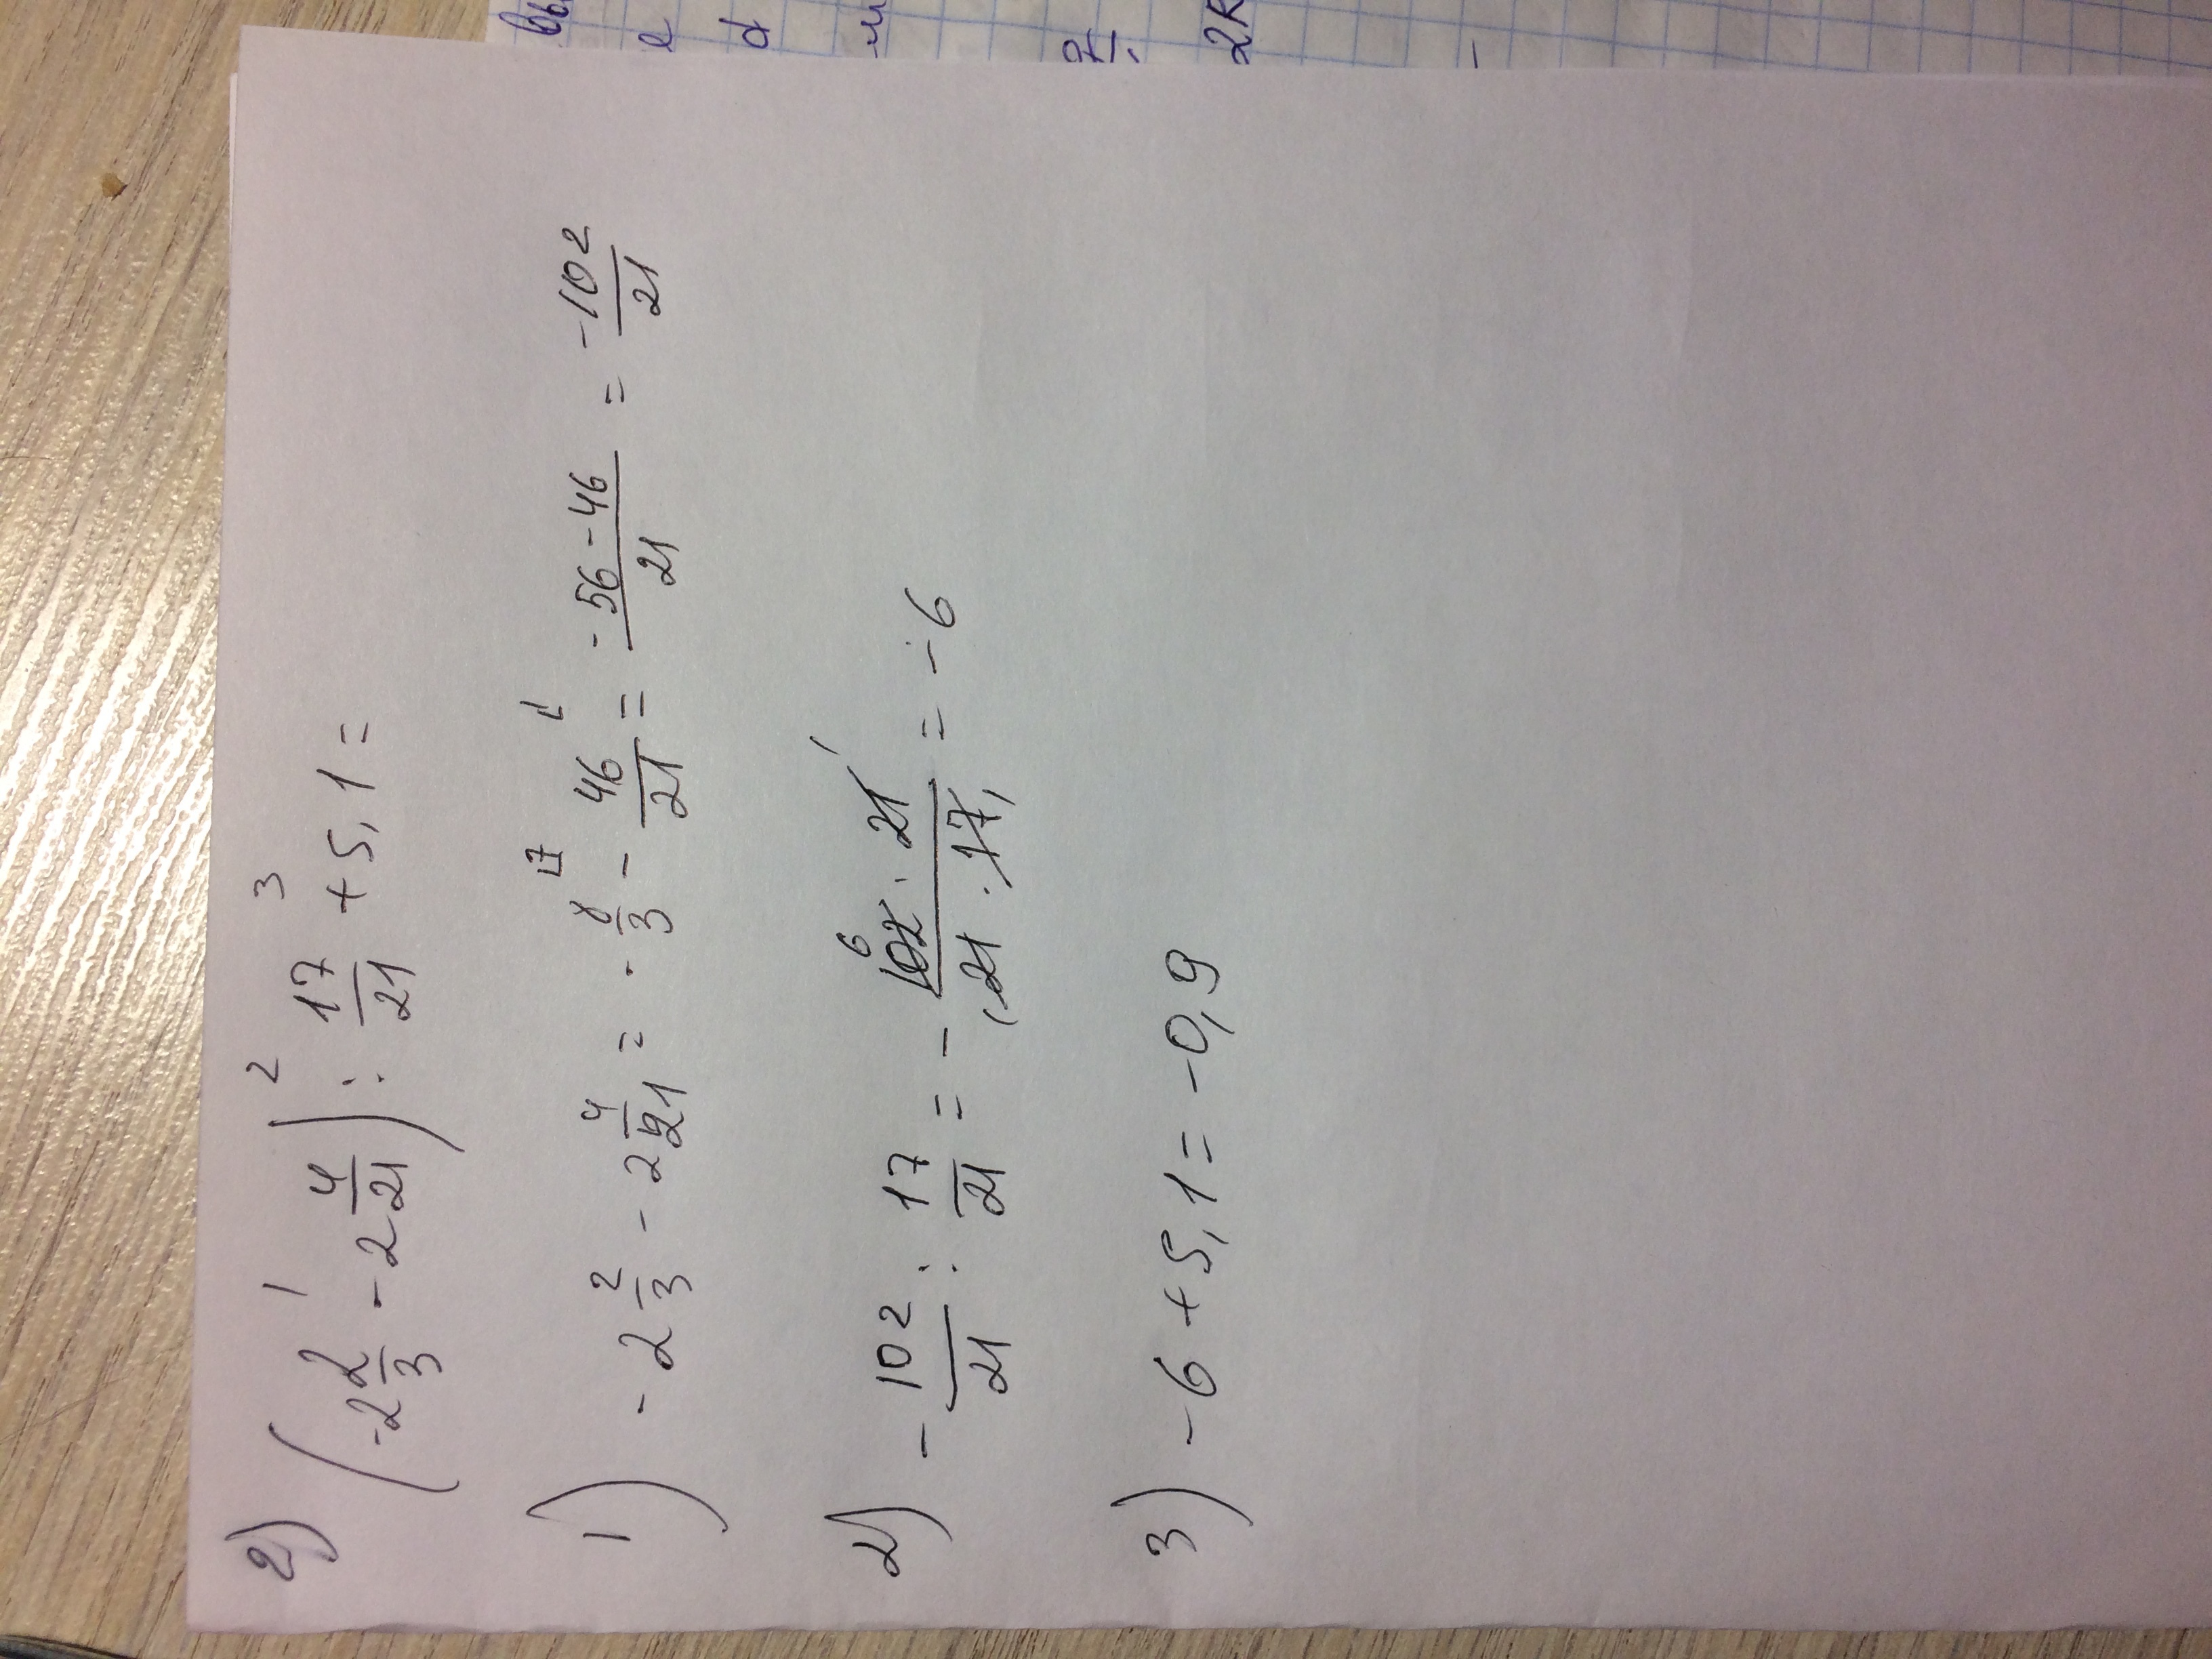 2) (-2 2/3 - 2 4/21) : 17/21 + 5,1 =
1 2 3
1) - 2 2/3 - 2 4/21 = - 8/3 - 46/21 = - 56 - 46/21 = - 102/21
2) - 102/21 : 17/21 = - 102 · 21/21 · 17 = - 6
3) - 6 + 5,1 = - 0,9
2R